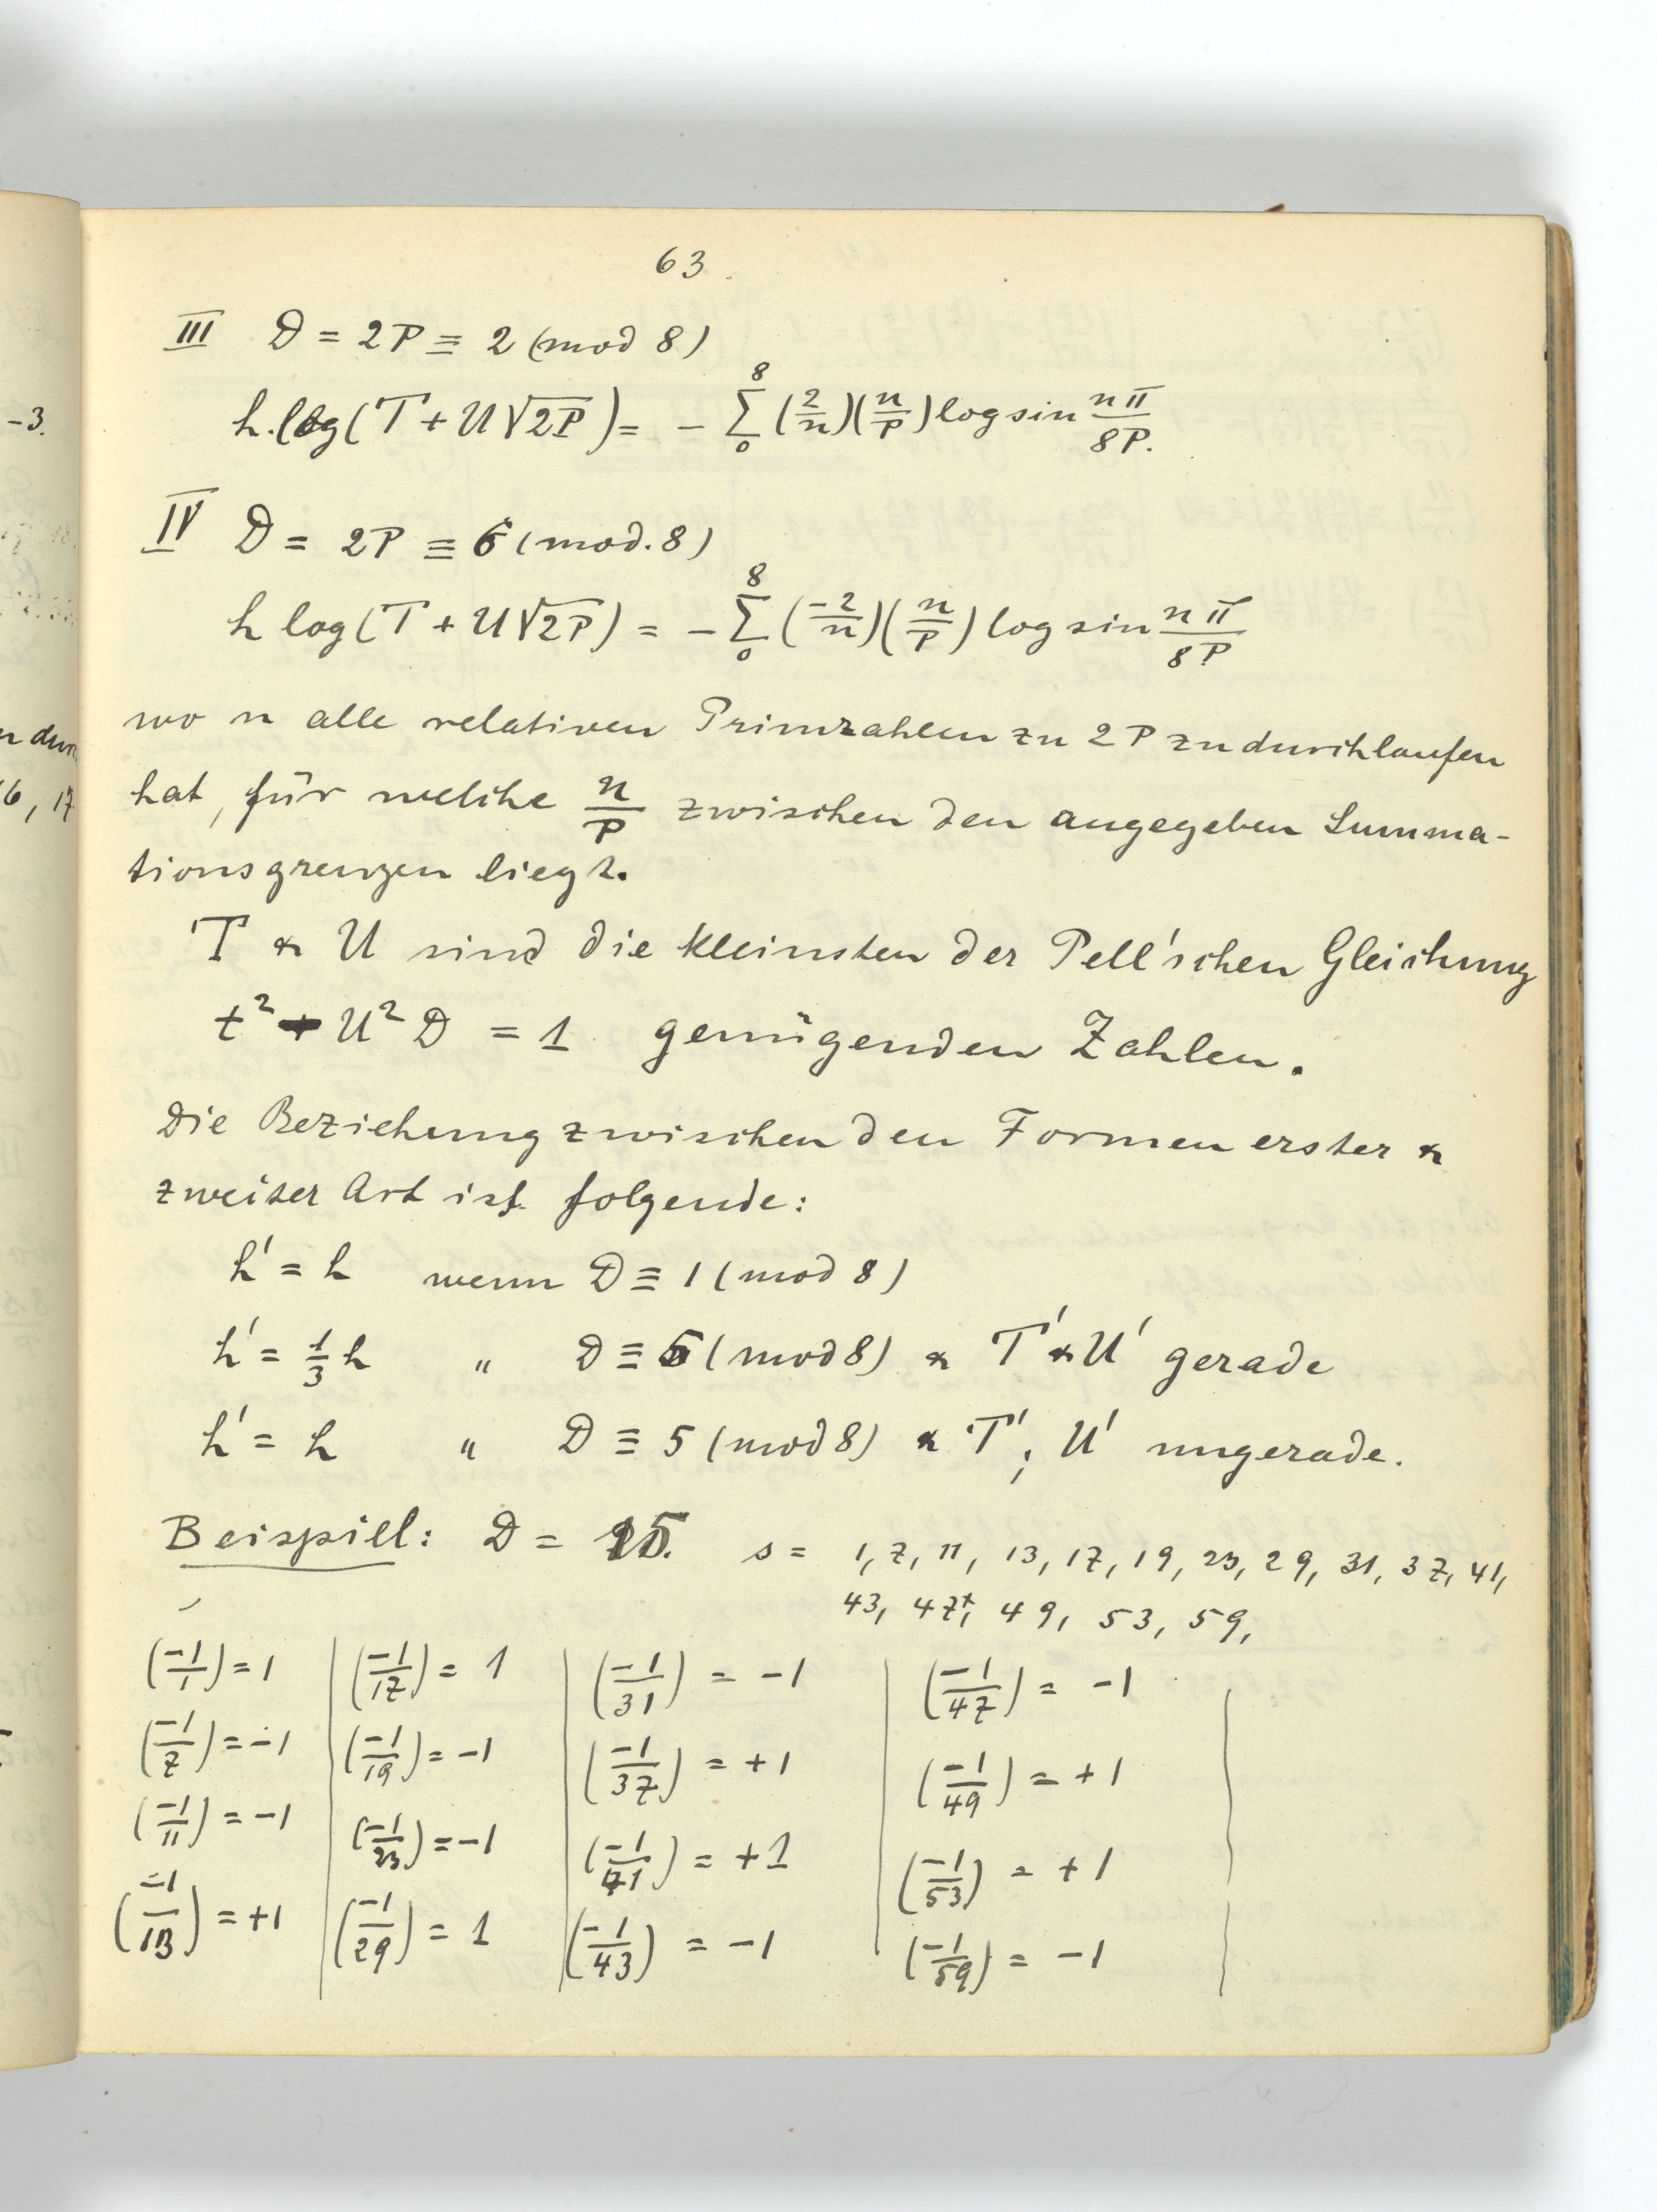 -3.
6, 17
63.
III D = 2P ≡ 2 (mod 8)
h. log (T + U√2P) = - Σ₀⁸ (2/n)(n/P) log sin nπ/8P.
IV D = 2P ≡ 6 (mod. 8)
h log (T + U√2P) = - Σ₀⁸ (-2/n)(n/P) log sin nπ/8P
wo n alle relativen Primzahlen zu 2P zu durchlaufen
hat, für welche n/P zwischen den angegeben Summa-
tionsgrenzen liegt.
T & U sind die kleinsten der Pell'schen Gleichung
t² - U² D = 1 genügenden Zahlen.
Die Beziehung zwischen den Formen erster &
zweiter Art ist folgende:
h' = h wenn D ≡ 1 (mod 8)
h' = 1/3 h " D ≡ 5 (mod 8) & T' & U' gerade
h' = h " D ≡ 5 (mod 8) & T', U' ungerade.
Beispiel: D = 15. s = 1, 7, 11, 13, 17, 19, 23, 29, 31, 37, 41,
43, 47, 49, 53, 59,
(-1/1) = 1 | (-1/17) = 1 | (-1/31) = -1 | (-1/47) = -1
(-1/7) = -1 | (-1/19) = -1 | (-1/37) = +1 | (-1/49) = +1
(-1/11) = -1 | (-1/23) = -1 | (-1/41) = +1 | (-1/53) = +1
(-1/13) = +1 | (-1/29) = 1 | (-1/43) = -1 | (-1/59) = -1